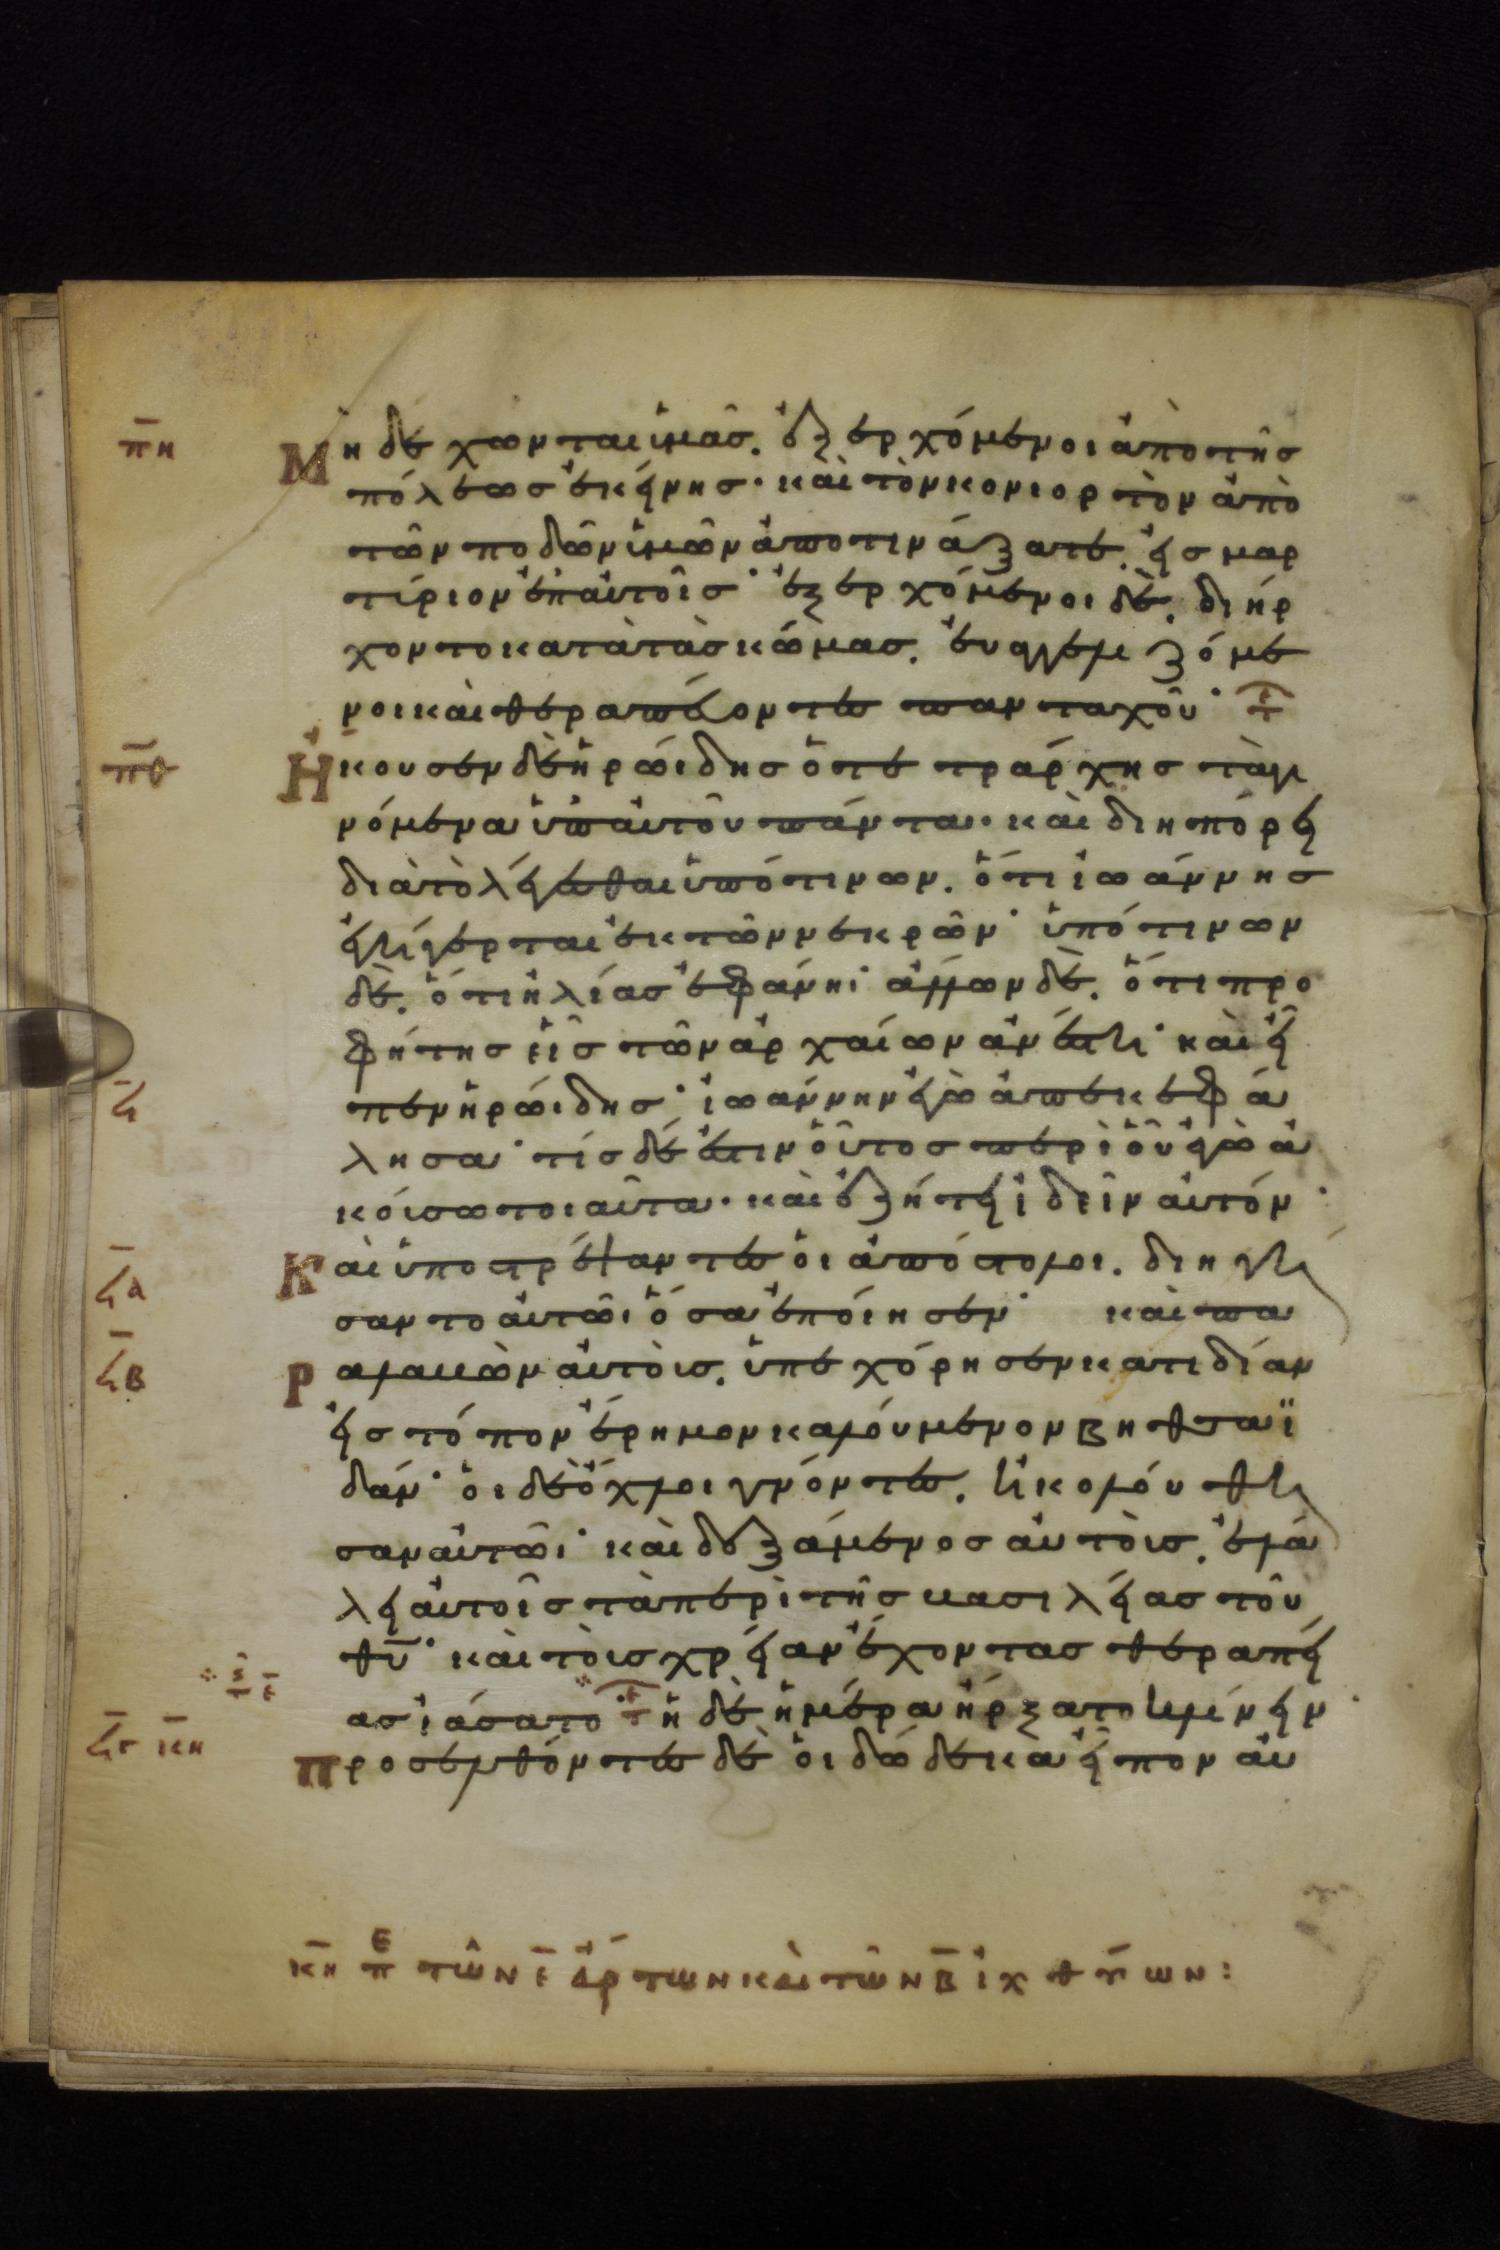 π̄η Μὴ δέχωνται ὑμᾶς. ἐξερχόμενοι ἀπὸ τῆς
πόλεως ἐκείνης· καὶ τὸν κονιορτὸν ἀπὸ
τῶν ποδῶν ὑμῶν ἀποτινάξατε. εἰς μαρ
τύριον ἐπ' αὐτοῖς· ἐξερχόμενοι δὲ. διήρ
χοντο κατὰ τὰς κώμας. εὐαγγελιζόμε
νοι καὶ θεραπεύοντες πανταχοῦ·
π̄θ Ἤκουσεν δὲ ἡρώιδης ὁ τετράρχης τὰ γι
νόμενα ὑπ' αὐτοῦ πάντα· καὶ διηπόρει
διὰ τὸ λέγεσθαι ὑπό τινων. ὅτι ἰωάννης
ἐγήγερται ἐκ τῶν νεκρῶν· ὑπό τινων
δὲ. ὅτι ἠλίας ἐφάνη· ἄλλων δὲ. ὅτι προ
φήτης εἷς τῶν ἀρχαίων ἀνέστη· καὶ εἶ
ϟ̄ πεν ἡρώιδης· ἰωάννην ἐγὼ ἀπεκεφά
λησα· τίς δέ ἐστιν οὗτος περὶ οὗ ἐγὼ ἀ
κούω τοιαῦτα· καὶ ἐζήτει ἰδεῖν αὐτόν·
ϟ̄α Καὶ ὑποστρέψαντες οἱ ἀπόστολοι. διηγή
σαντο αὐτῶι ὅσα ἐποίησεν· καὶ πα
ϟ̄β Ραλαβὼν αὐτοὺς. ὑπεχόρησεν κατιδίαν
εἰς τόπον ἔρημον καλούμενον βηθσαϊ
δάν· οἱ δὲ ὄχλοι γνόντες. ἠκολούθη
σαν αὐτῶι· καὶ δεξάμενος αὐτοὺς. ἐλά
λει αὐτοῖς τὰ περὶ τῆς βασιλείας τοῦ
θῡ· καὶ τοὺς χρείαν ἔχοντας θεραπεί
ας ἰάσατο· ἡ δὲ ἡμέρα ἤρξατο κλίνειν·
ϟ̄γ κ̄η Προσελθόντες δὲ οἱ δώδεκα εἶπον αὐ
κ̄η πε τῶν ε̄ ἄρτων καὶ τῶν β̄ ἰχθύων: